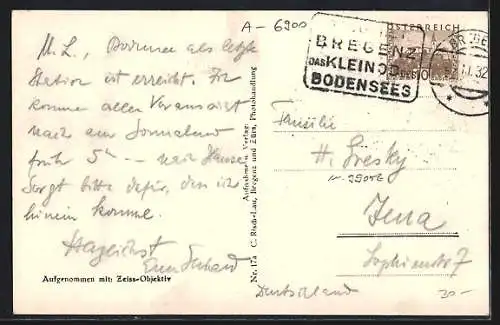 A-6900
ÖSTERREICH
BREGENZ
DAS KLEINOD
BODENSEES
M. L., Bodensee als letzte
Station ist erreicht. Ich
komme aller Voraussicht
nach am Sonnabend
früh 5h -- nach Hause.
Sorgt bitte dafür, dass ich
hinein komme.
Herzlichst
Familie
H. Gresky
Jena
Sophienstr 7
Deutschland
30.-
Aufgenommen mit: Zeiss-Objektiv
Nr. 174 C. Risch-Lau, Bregenz und Zürs, Photohandlung
Aufnahme u. Verlag